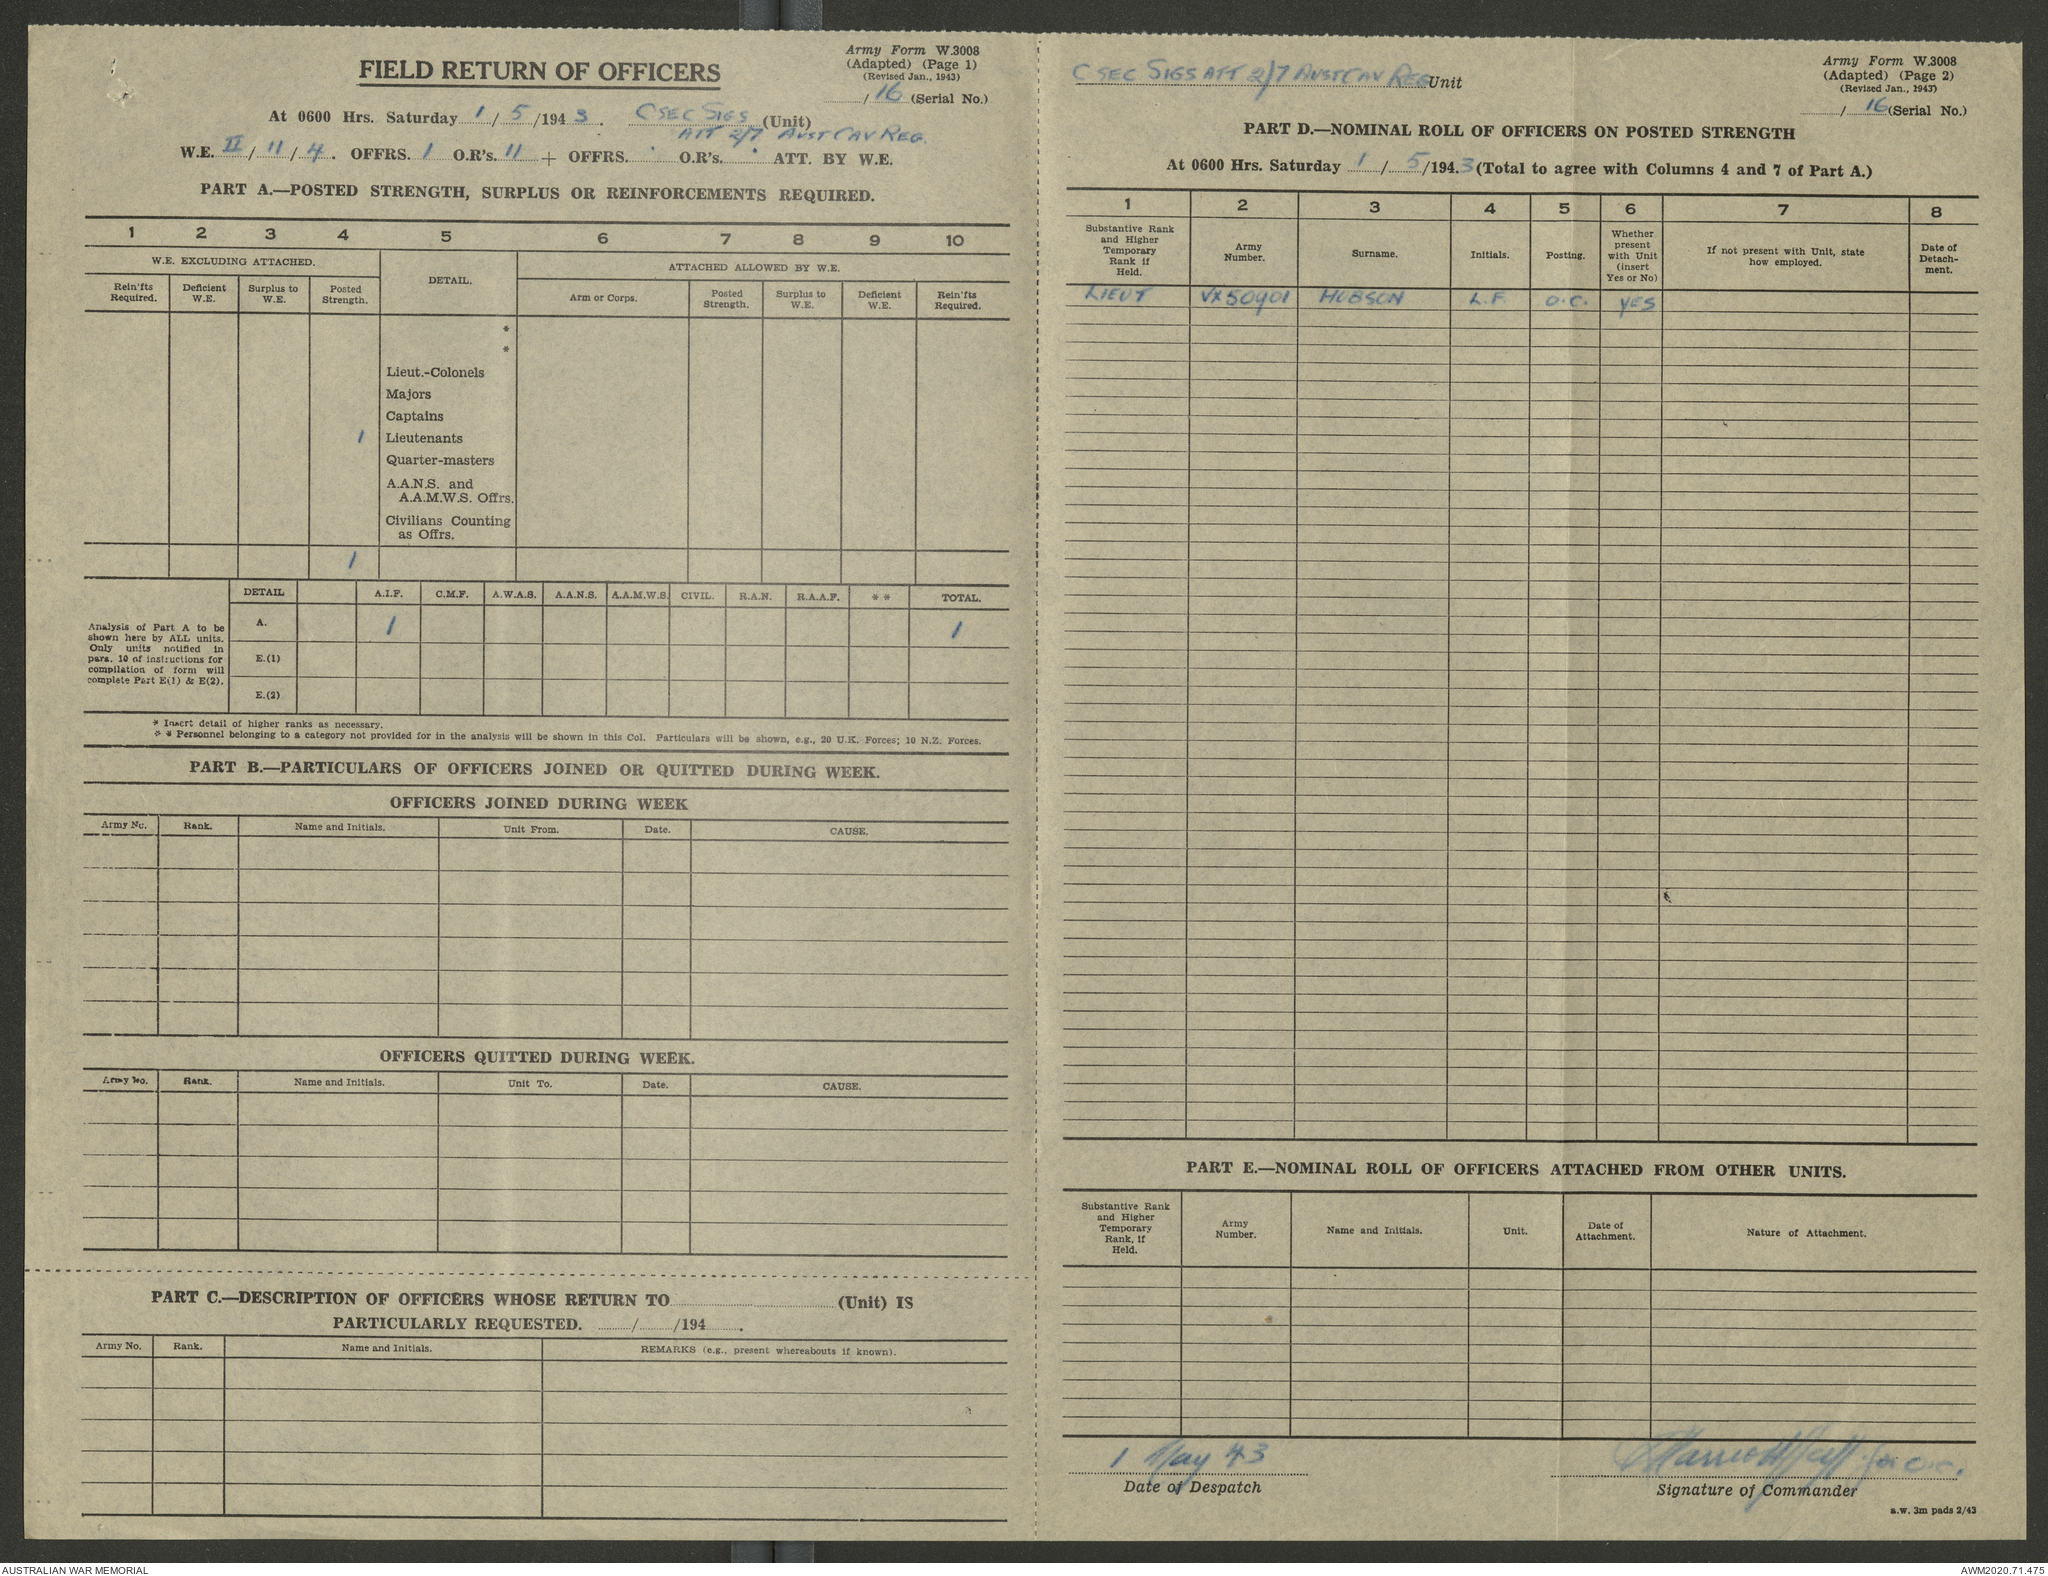 FIELD RETURN OF OFFICERS
Army Form W.3008
(Adapted) (Page 1)
(Revised Jan., 1943)
/ 16 (Serial No.)
At 0600 Hrs. Saturday 1 / 5 /194 3 . C SEC SIGS (Unit)
ATT 2/7 AUST CAV REG.
W.E. II / 11 / 4 . OFFRS. 1 O.R's. 11 + OFFRS. . O.R's. . ATT. BY W.E.
PART A.—POSTED STRENGTH, SURPLUS OR REINFORCEMENTS REQUIRED.
1 2 3 4 5 6 7 8 9 10
W.E. EXCLUDING ATTACHED. DETAIL. ATTACHED ALLOWED BY W.E.
Rein'fts Required. Deficient W.E. Surplus to W.E. Posted Strength. Arm or Corps. Posted Strength. Surplus to W.E. Deficient W.E. Rein'fts Required.
*
*
Lieut.-Colonels
Majors
Captains
1 Lieutenants
Quarter-masters
A.A.N.S. and
A.A.M.W.S. Offrs.
Civilians Counting
as Offrs.
1
DETAIL A.I.F. C.M.F. A.W.A.S. A.A.N.S. A.A.M.W.S. CIVIL. R.A.N. R.A.A.F. * * TOTAL.
Analysis of Part A to be
shown here by ALL units.
Only units notified in
para. 10 of instructions for
compilation of form will
complete Part E(1) & E(2).
A. 1 1
E.(1)
E.(2)
* Insert detail of higher ranks as necessary.
* * Personnel belonging to a category not provided for in the analysis will be shown in this Col. Particulars will be shown, e.g., 20 U.K. Forces; 10 N.Z. Forces.
PART B.—PARTICULARS OF OFFICERS JOINED OR QUITTED DURING WEEK.
OFFICERS JOINED DURING WEEK
Army No. Rank. Name and Initials. Unit From. Date. CAUSE.
OFFICERS QUITTED DURING WEEK.
Army No. Rank. Name and Initials. Unit To. Date. CAUSE.
PART C.—DESCRIPTION OF OFFICERS WHOSE RETURN TO (Unit) IS
PARTICULARLY REQUESTED. / /194 .
Army No. Rank. Name and Initials. REMARKS (e.g., present whereabouts if known).
C SEC SIGS ATT 2/7 AUST CAV REG Unit
Army Form W.3008
(Adapted) (Page 2)
(Revised Jan., 1943)
/ 16 (Serial No.)
PART D.—NOMINAL ROLL OF OFFICERS ON POSTED STRENGTH
At 0600 Hrs. Saturday 1 / 5 /194.3 (Total to agree with Columns 4 and 7 of Part A.)
1 2 3 4 5 6 7 8
Substantive Rank and Higher Temporary Rank if Held. Army Number. Surname. Initials. Posting. Whether present with Unit (insert Yes or No) If not present with Unit, state how employed. Date of Detach-ment.
LIEUT VX50901 HOBSON L.F. O.C. YES
PART E.—NOMINAL ROLL OF OFFICERS ATTACHED FROM OTHER UNITS.
Substantive Rank and Higher Temporary Rank, if Held. Army Number. Name and Initials. Unit. Date of Attachment. Nature of Attachment.
1 May 43 for O.C.
Date of Despatch Signature of Commander
a.w. 3m pads 2/43
AUSTRALIAN WAR MEMORIAL AWM2020.71.475